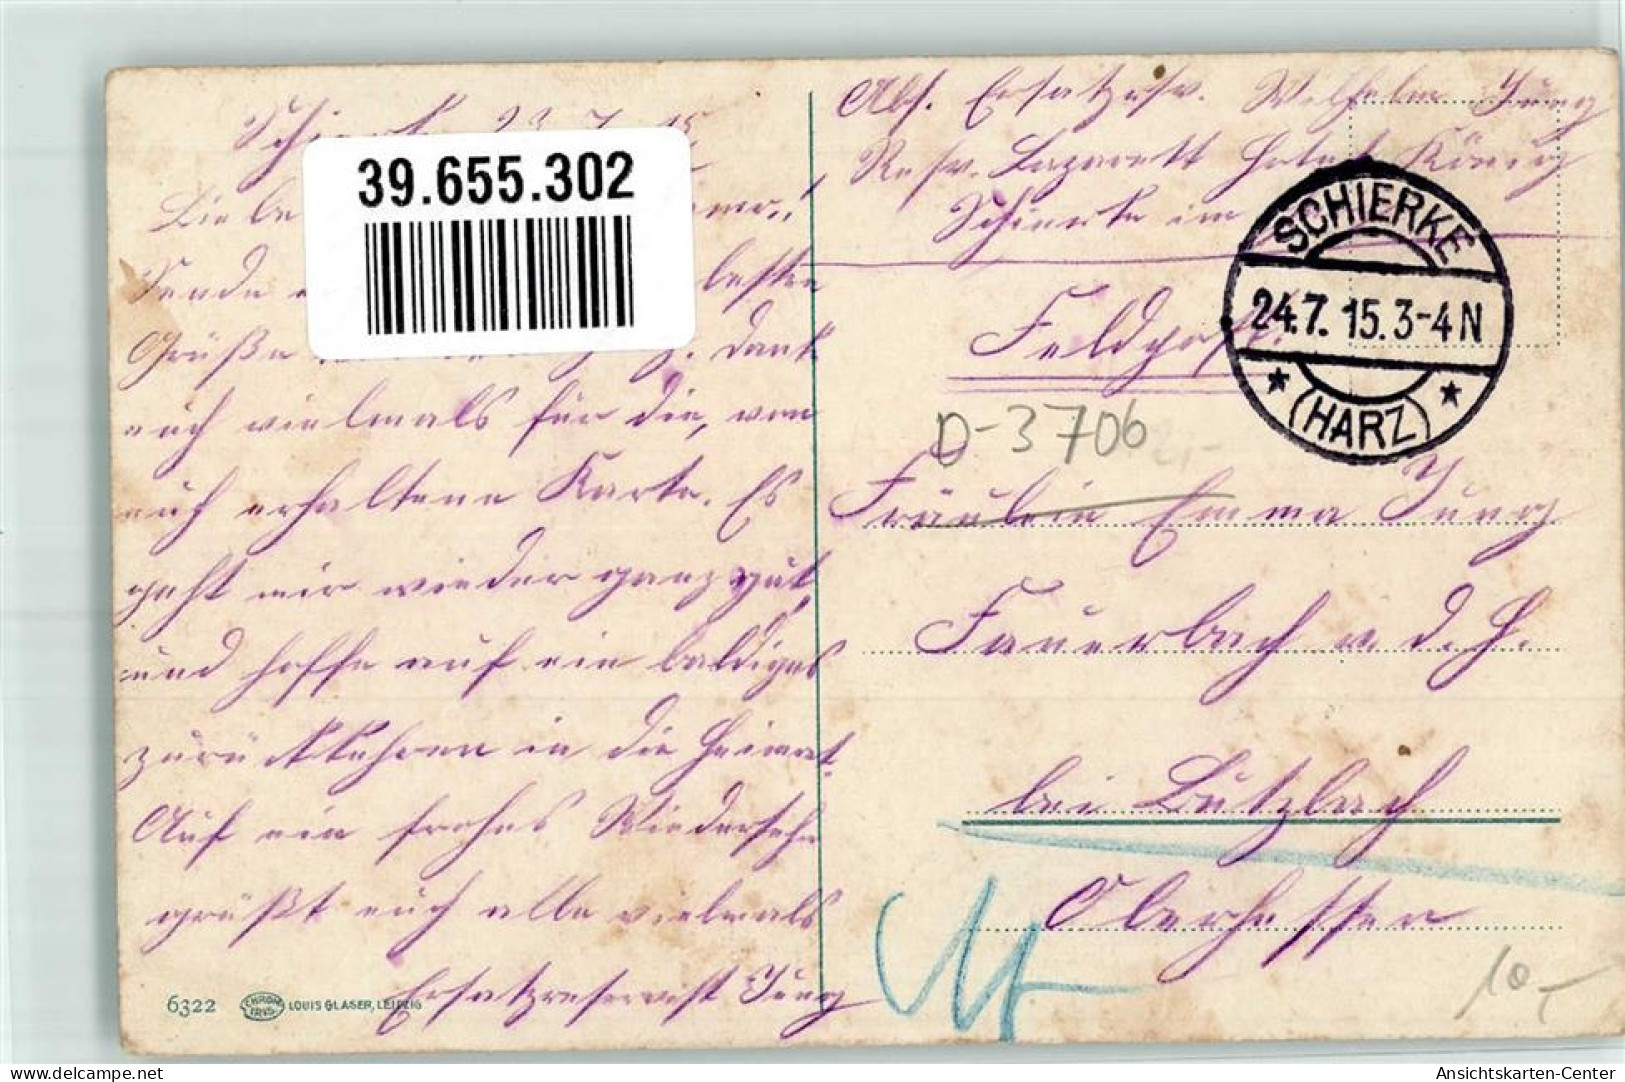 Schierke 23.7.15
39.655.302
Liebe
Sende besten
Grüße Dank
euch vielmals für die, von
euch erhaltene Karte. Es
geht mir wieder ganz gut,
und hoffe auf ein baldiges
zurückkehren in die Heimat.
Auf ein frohes Wiedersehn
grüßt euch alle vielmals
Ersatzreservist Jung
6322 CHROM IRIS LOUIS GLASER, LEIPZIG
Abs. Ersatzresv. Wilhelm Jung
Resv. Lazarett Hotel König
Schierke im
SCHIERKE
24.7.15.3-4N
(HARZ)
Feldpost.
D-3706
Fräulein Emma Jung
Fauerbach v. d. H.
bei Butzbach
Oberhessen
10,-
Ansichtskarten-Center